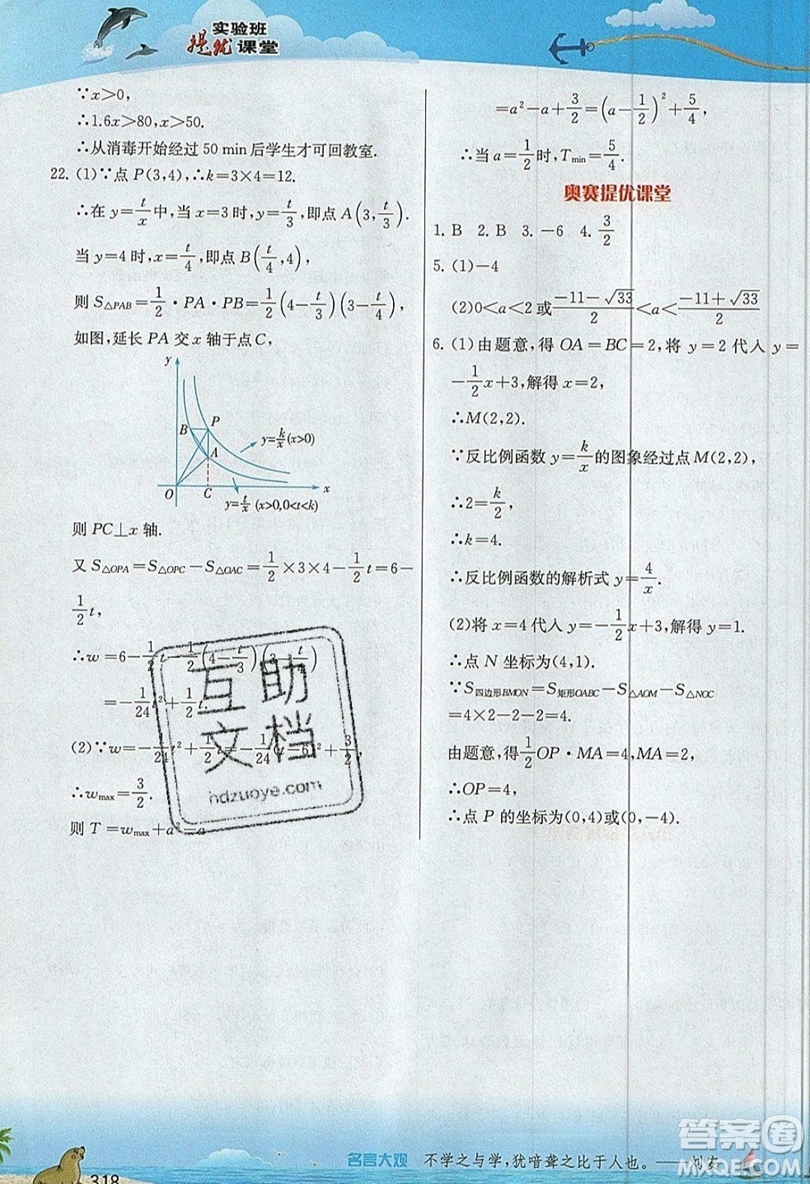 实验班
提优课堂
∵x>0,
∴1.6x>80,x>50.
∴从消毒开始经过 50 min 后学生才可回教室.
22. (1)∵点 P(3,4),∴k=3×4=12.
∴在 y=t/x 中,当 x=3 时,y=t/3,即点 A(3,t/3).
当 y=4 时,x=t/4,即点 B(t/4,4),
则 S△PAB=1/2·PA·PB=1/2(4-t/3)(3-t/4),
如图,延长 PA 交 x 轴于点 C,
y
B P
A
y=k/x(x>0)
O C x
y=t/x (x>0,0<t<k)
则 PC⊥x 轴.
又 S△OPA=S△OPC-S△OAC=1/2×3×4-1/2t=6-
1/2t,
∴w=6-1/2t-1/2(4-t/3)(3-t/4)
=-1/24t²+1/2t.
(2)∵w=-1/24t²+1/2t=-1/24(t-6)²+3/2,
∴wmax=3/2.
则 T=wmax+a²-a
=a²-a+3/2=(a-1/2)²+5/4,
∴当 a=1/2时,Tmin=5/4.
奥赛提优课堂
1. B 2. B 3. -6 4. 3/2
5. (1)-4
(2)0<a<2 或(-11-√33)/2<a<(-11+√33)/2
6. (1)由题意,得 OA=BC=2,将 y=2 代入 y=
-1/2x+3,解得 x=2,
∴M(2,2).
∵反比例函数 y=k/x的图象经过点 M(2,2),
∴2=k/2,
∴k=4.
∴反比例函数的解析式 y=4/x.
(2)将 x=4 代入 y=-1/2x+3,解得 y=1.
∴点 N 坐标为(4,1).
∵S四边形BMON=S矩形OABC-S△AOM-S△NOC
=4×2-2-2=4.
由题意,得1/2OP·MA=4,MA=2,
∴OP=4,
∴点 P 的坐标为(0,4)或(0,-4).
互助
文档
hdzuoye.com
318
名言大观 不学之与学,犹喑聋之比于人也。——刘安
答案圈
MXQE.COM